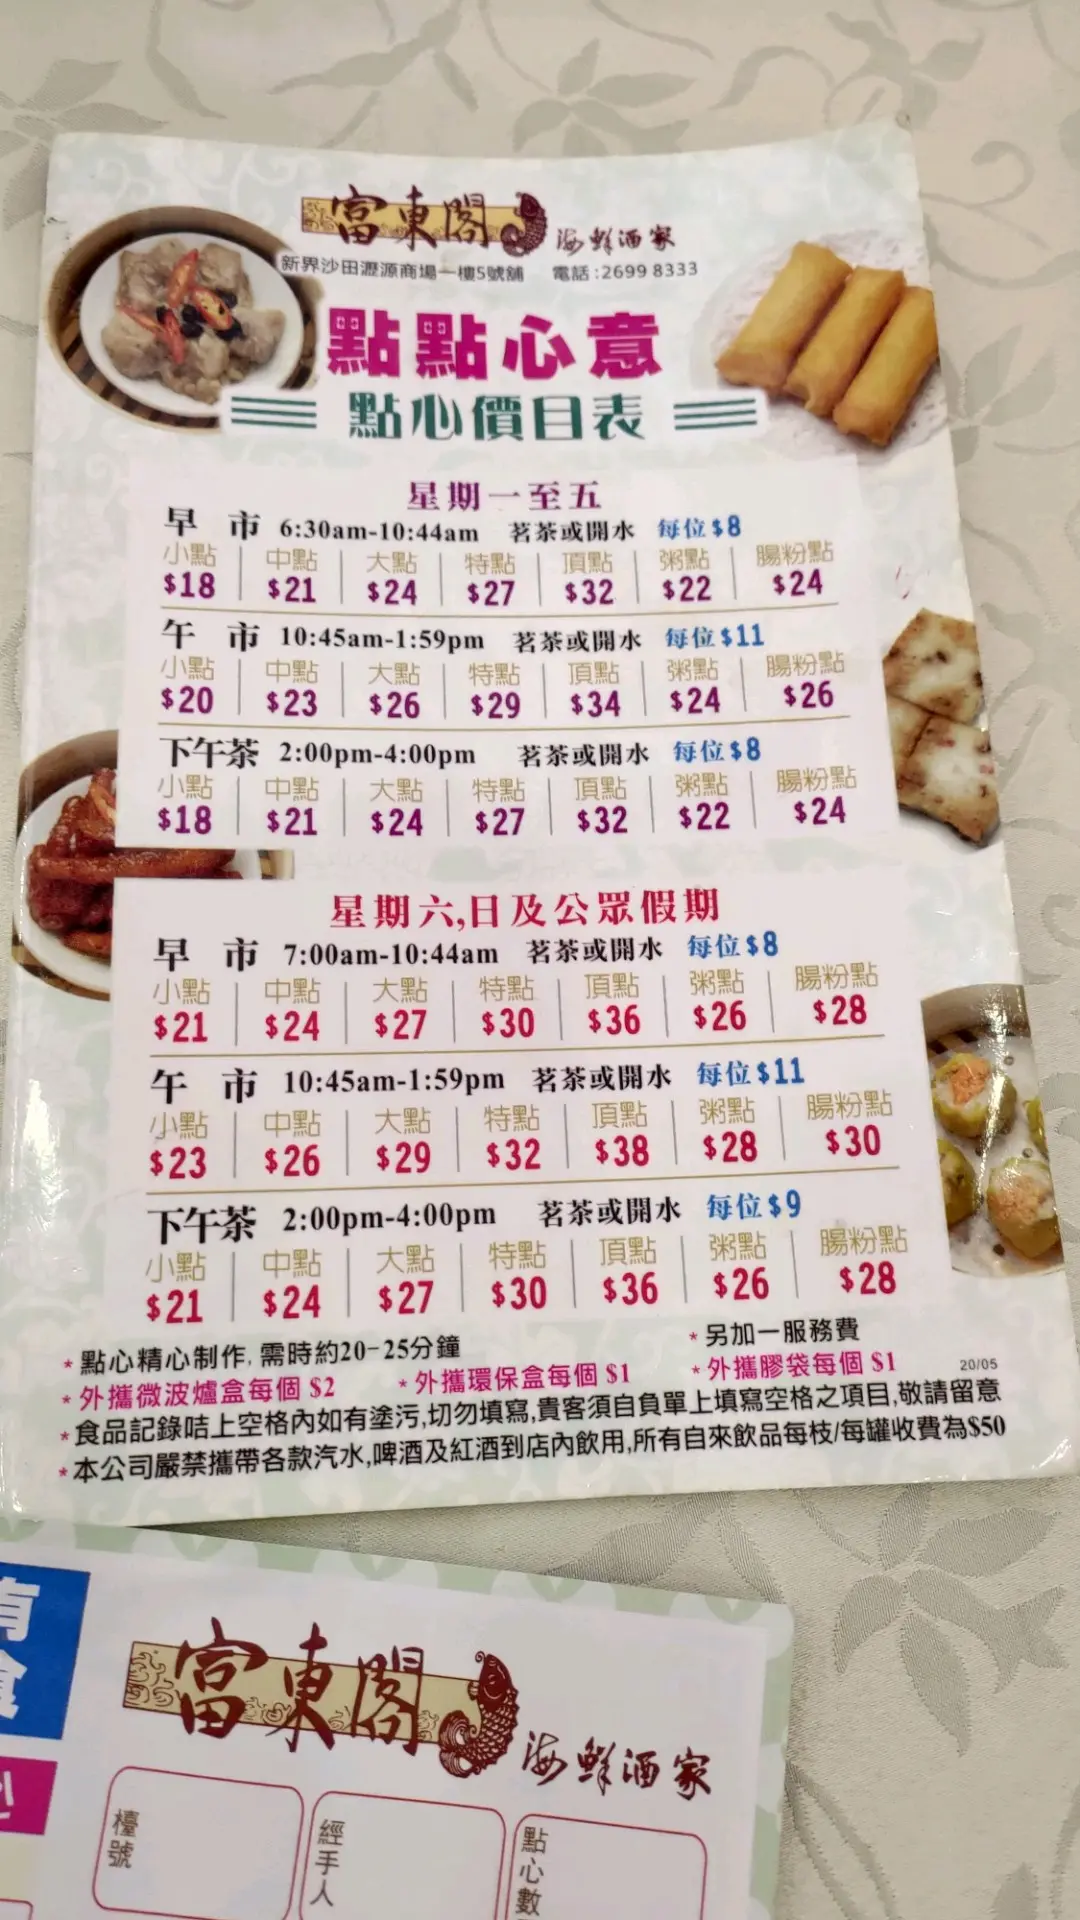 富東閣 海鮮酒家
新界沙田瀝源商場一樓5號舖 電話:2699 8333
點點心意
點心價目表
星期一至五
早 市 6:30am-10:44am 茗茶或開水 每位$8
小點 中點 大點 特點 頂點 粥點 腸粉點
$18 $21 $24 $27 $32 $22 $24
午 市 10:45am-1:59pm 茗茶或開水 每位$11
小點 中點 大點 特點 頂點 粥點 腸粉點
$20 $23 $26 $29 $34 $24 $26
下午茶 2:00pm-4:00pm 茗茶或開水 每位$8
小點 中點 大點 特點 頂點 粥點 腸粉點
$18 $21 $24 $27 $32 $22 $24
星期六,日及公眾假期
早 市 7:00am-10:44am 茗茶或開水 每位$8
小點 中點 大點 特點 頂點 粥點 腸粉點
$21 $24 $27 $30 $36 $26 $28
午 市 10:45am-1:59pm 茗茶或開水 每位$11
小點 中點 大點 特點 頂點 粥點 腸粉點
$23 $26 $29 $32 $38 $28 $30
下午茶 2:00pm-4:00pm 茗茶或開水 每位$9
小點 中點 大點 特點 頂點 粥點 腸粉點
$21 $24 $27 $30 $36 $26 $28
*點心精心制作,需時約20-25分鐘 *另加一服務費
*外攜微波爐盒每個 $2 *外攜環保盒每個 $1 *外攜膠袋每個 $1 20/05
*食品記錄咭上空格內如有塗污,切勿填寫,貴客須自負單上填寫空格之項目,敬請留意
*本公司嚴禁攜帶各款汽水,啤酒及紅酒到店內飲用,所有自來飲品每枝/每罐收費為$50
富東閣 海鮮酒家
檯號 經手人 點心數